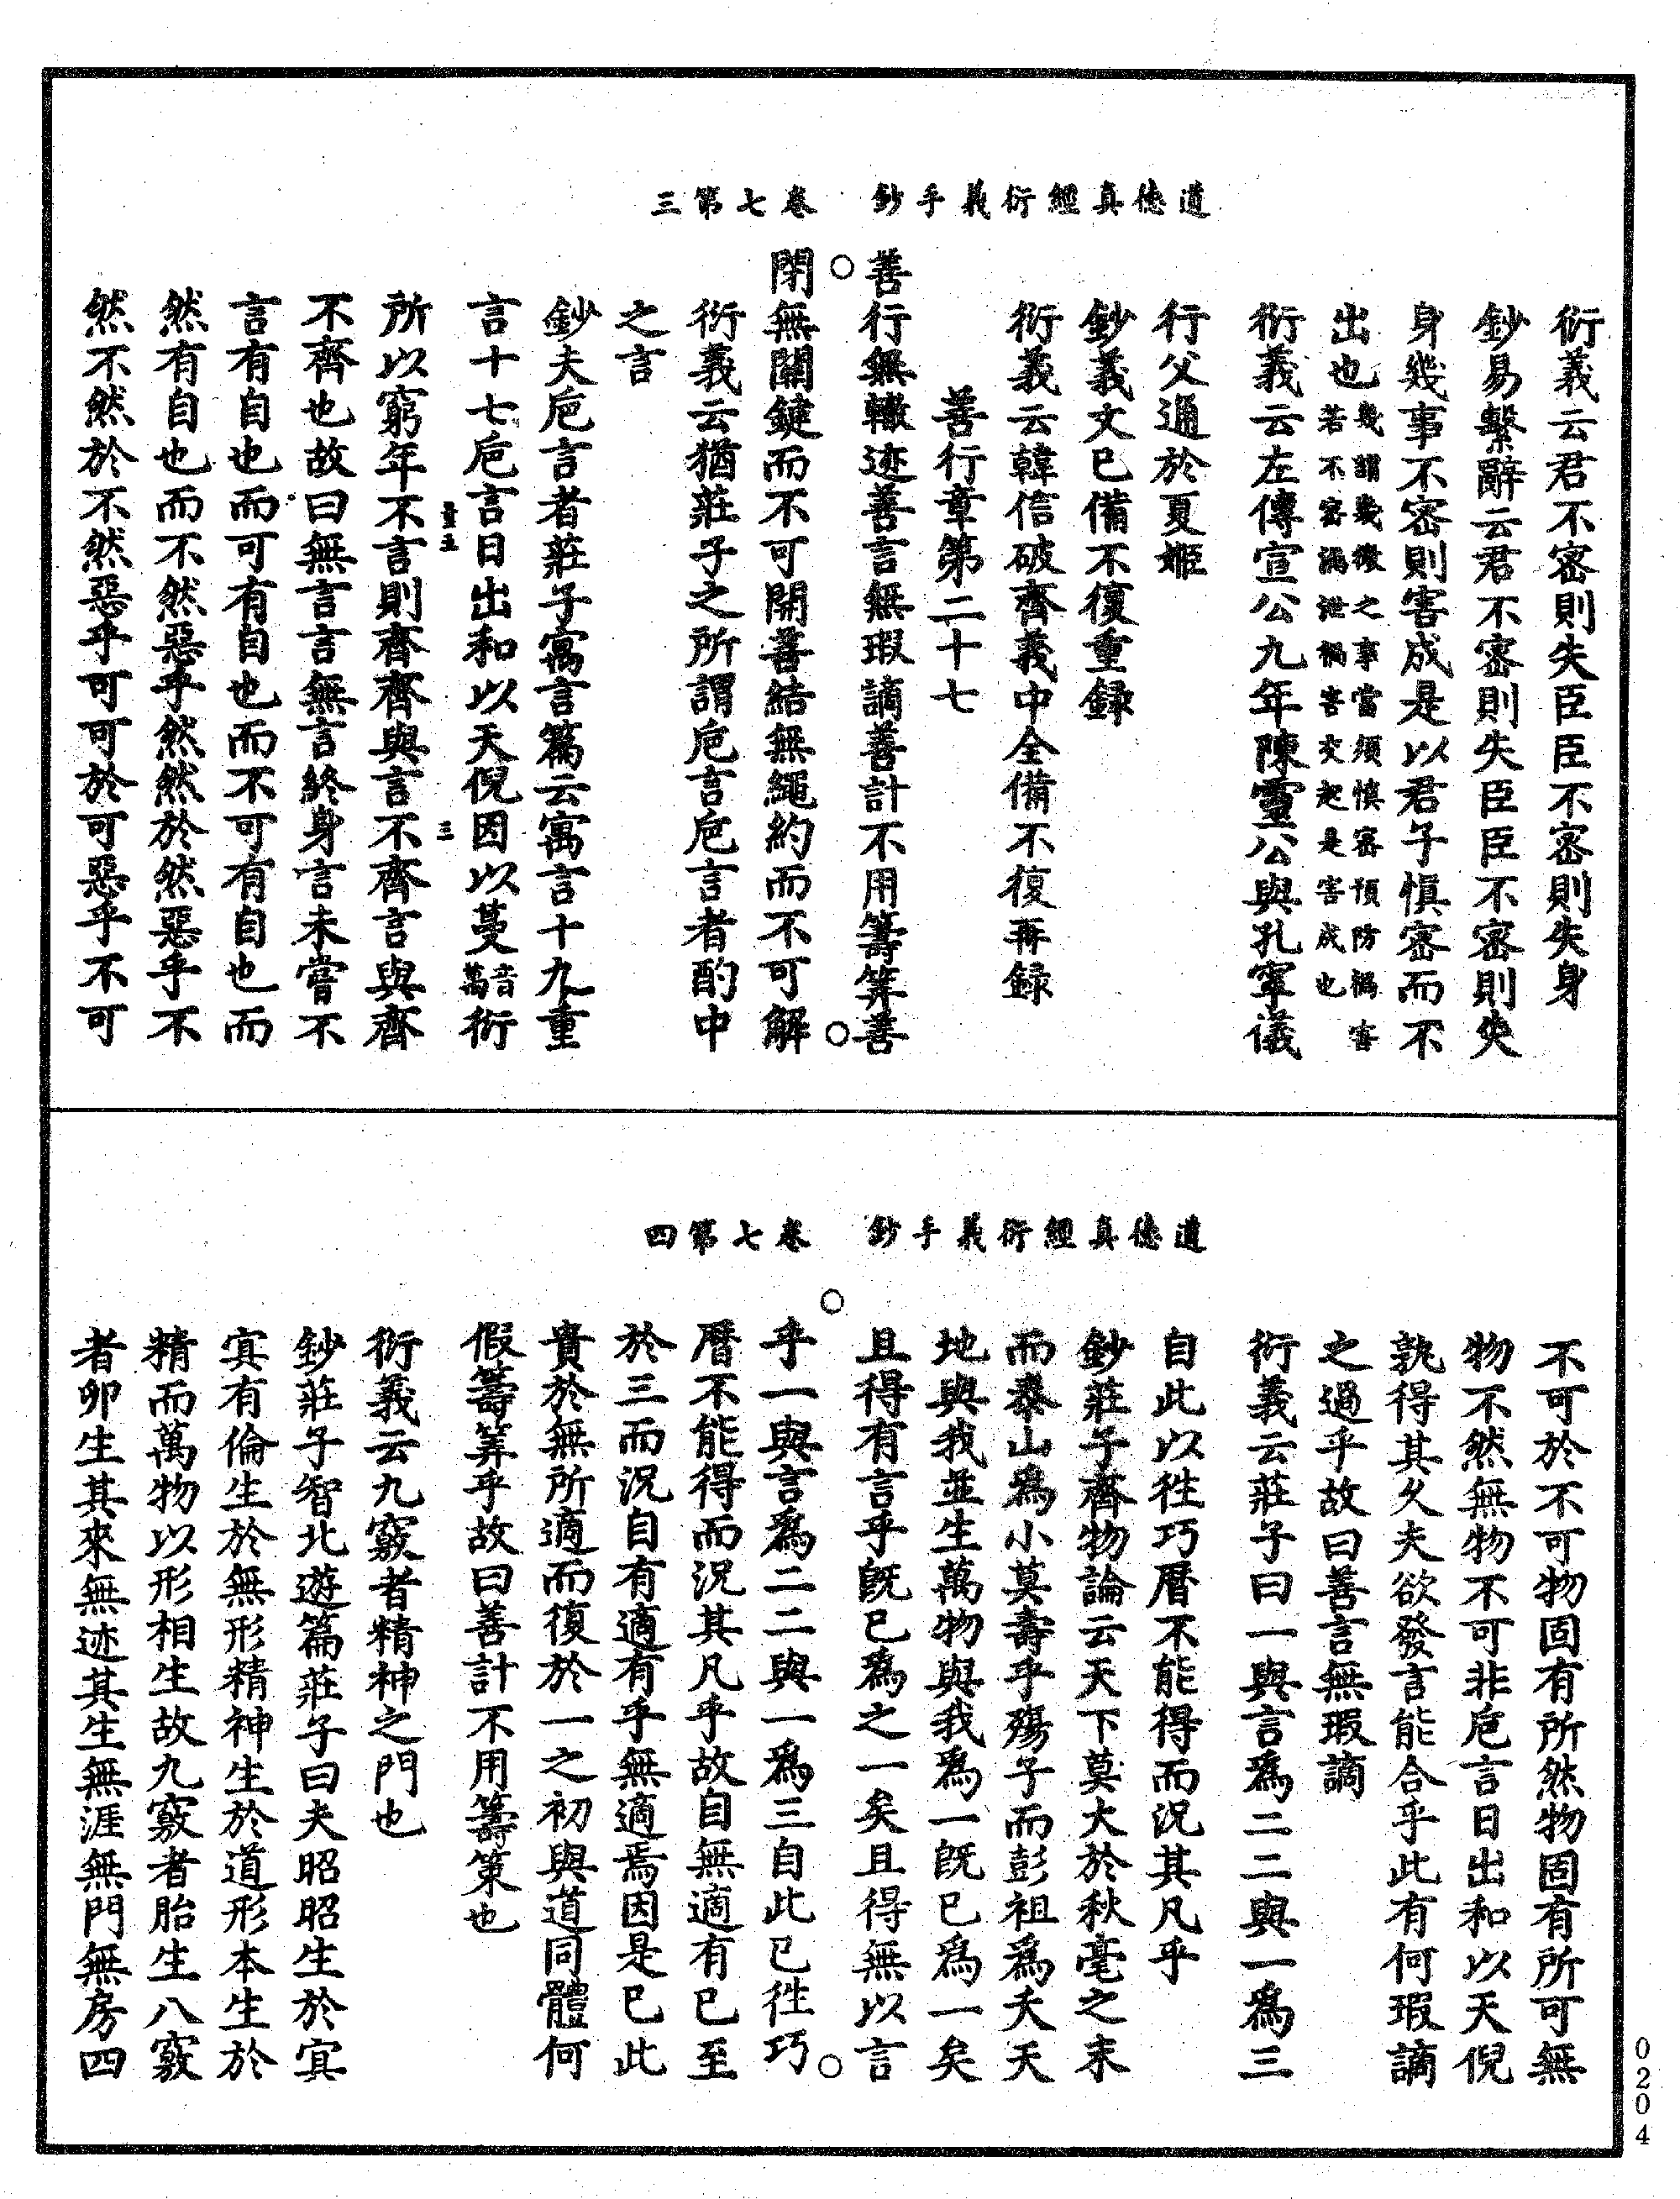 道德真經衍義手鈔　卷七第三
衍義云君不密則失臣臣不密則失身
鈔易繫辭云君不密則失臣臣不密則失
身幾事不密則害成是以君子慎密而不
出也幾謂幾微之事當須慎密預防禍害若不密漏泄禍害交起是害成也
衍義云左傳宣公九年陳靈公與孔寧儀
行父通於夏姬
鈔義文已備不復重録
衍義云韓信破齊義中全備不復再録
善行章第二十七
善行無轍迹善言無瑕謫善計不用籌筭善
閉無關鍵而不可開善結無繩約而不可解
衍義云猶莊子之所謂巵言巵言者酌中
之言
鈔夫巵言者莊子寓言篇云寓言十九重
言十七巵言日出和以天倪因以蔓音萬衍
所以窮年不言則齊齊與言不齊言與齊
不齊也故曰無言言無言終身言未嘗不
言有自也而可有自也而不可有自也而
然有自也而不然惡乎然然於然惡乎不
然不然於不然惡乎可可於可惡乎不可
道德真經衍義手鈔　卷七第四
不可於不可物固有所然物固有所可無
物不然無物不可非巵言日出和以天倪
孰得其久夫欲發言能合乎此有何瑕謫
之過乎故曰善言無瑕謫
衍義云莊子曰一與言爲二二與一爲三
自此以徃巧曆不能得而況其凡乎
鈔莊子齊物論云天下莫大於秋毫之末
而泰山爲小莫壽乎殤子而彭祖爲夭天
地與我並生萬物與我爲一既已爲一矣
且得有言乎既已爲之一矣且得無以言
乎一與言爲二二與一爲三自此已徃巧
曆不能得而況其凡乎故自無適有已至
於三而況自有適有乎無適焉因是已此
貴於無所適而復於一之初與道同體何
假籌筭乎故曰善計不用籌策也
衍義云九竅者精神之門也
鈔莊子智北遊篇莊子曰夫昭昭生於冥
冥有倫生於無形精神生於道形本生於
精而萬物以形相生故九竅者胎生八竅
者卵生其來無迹其生無涯無門無房四
0204